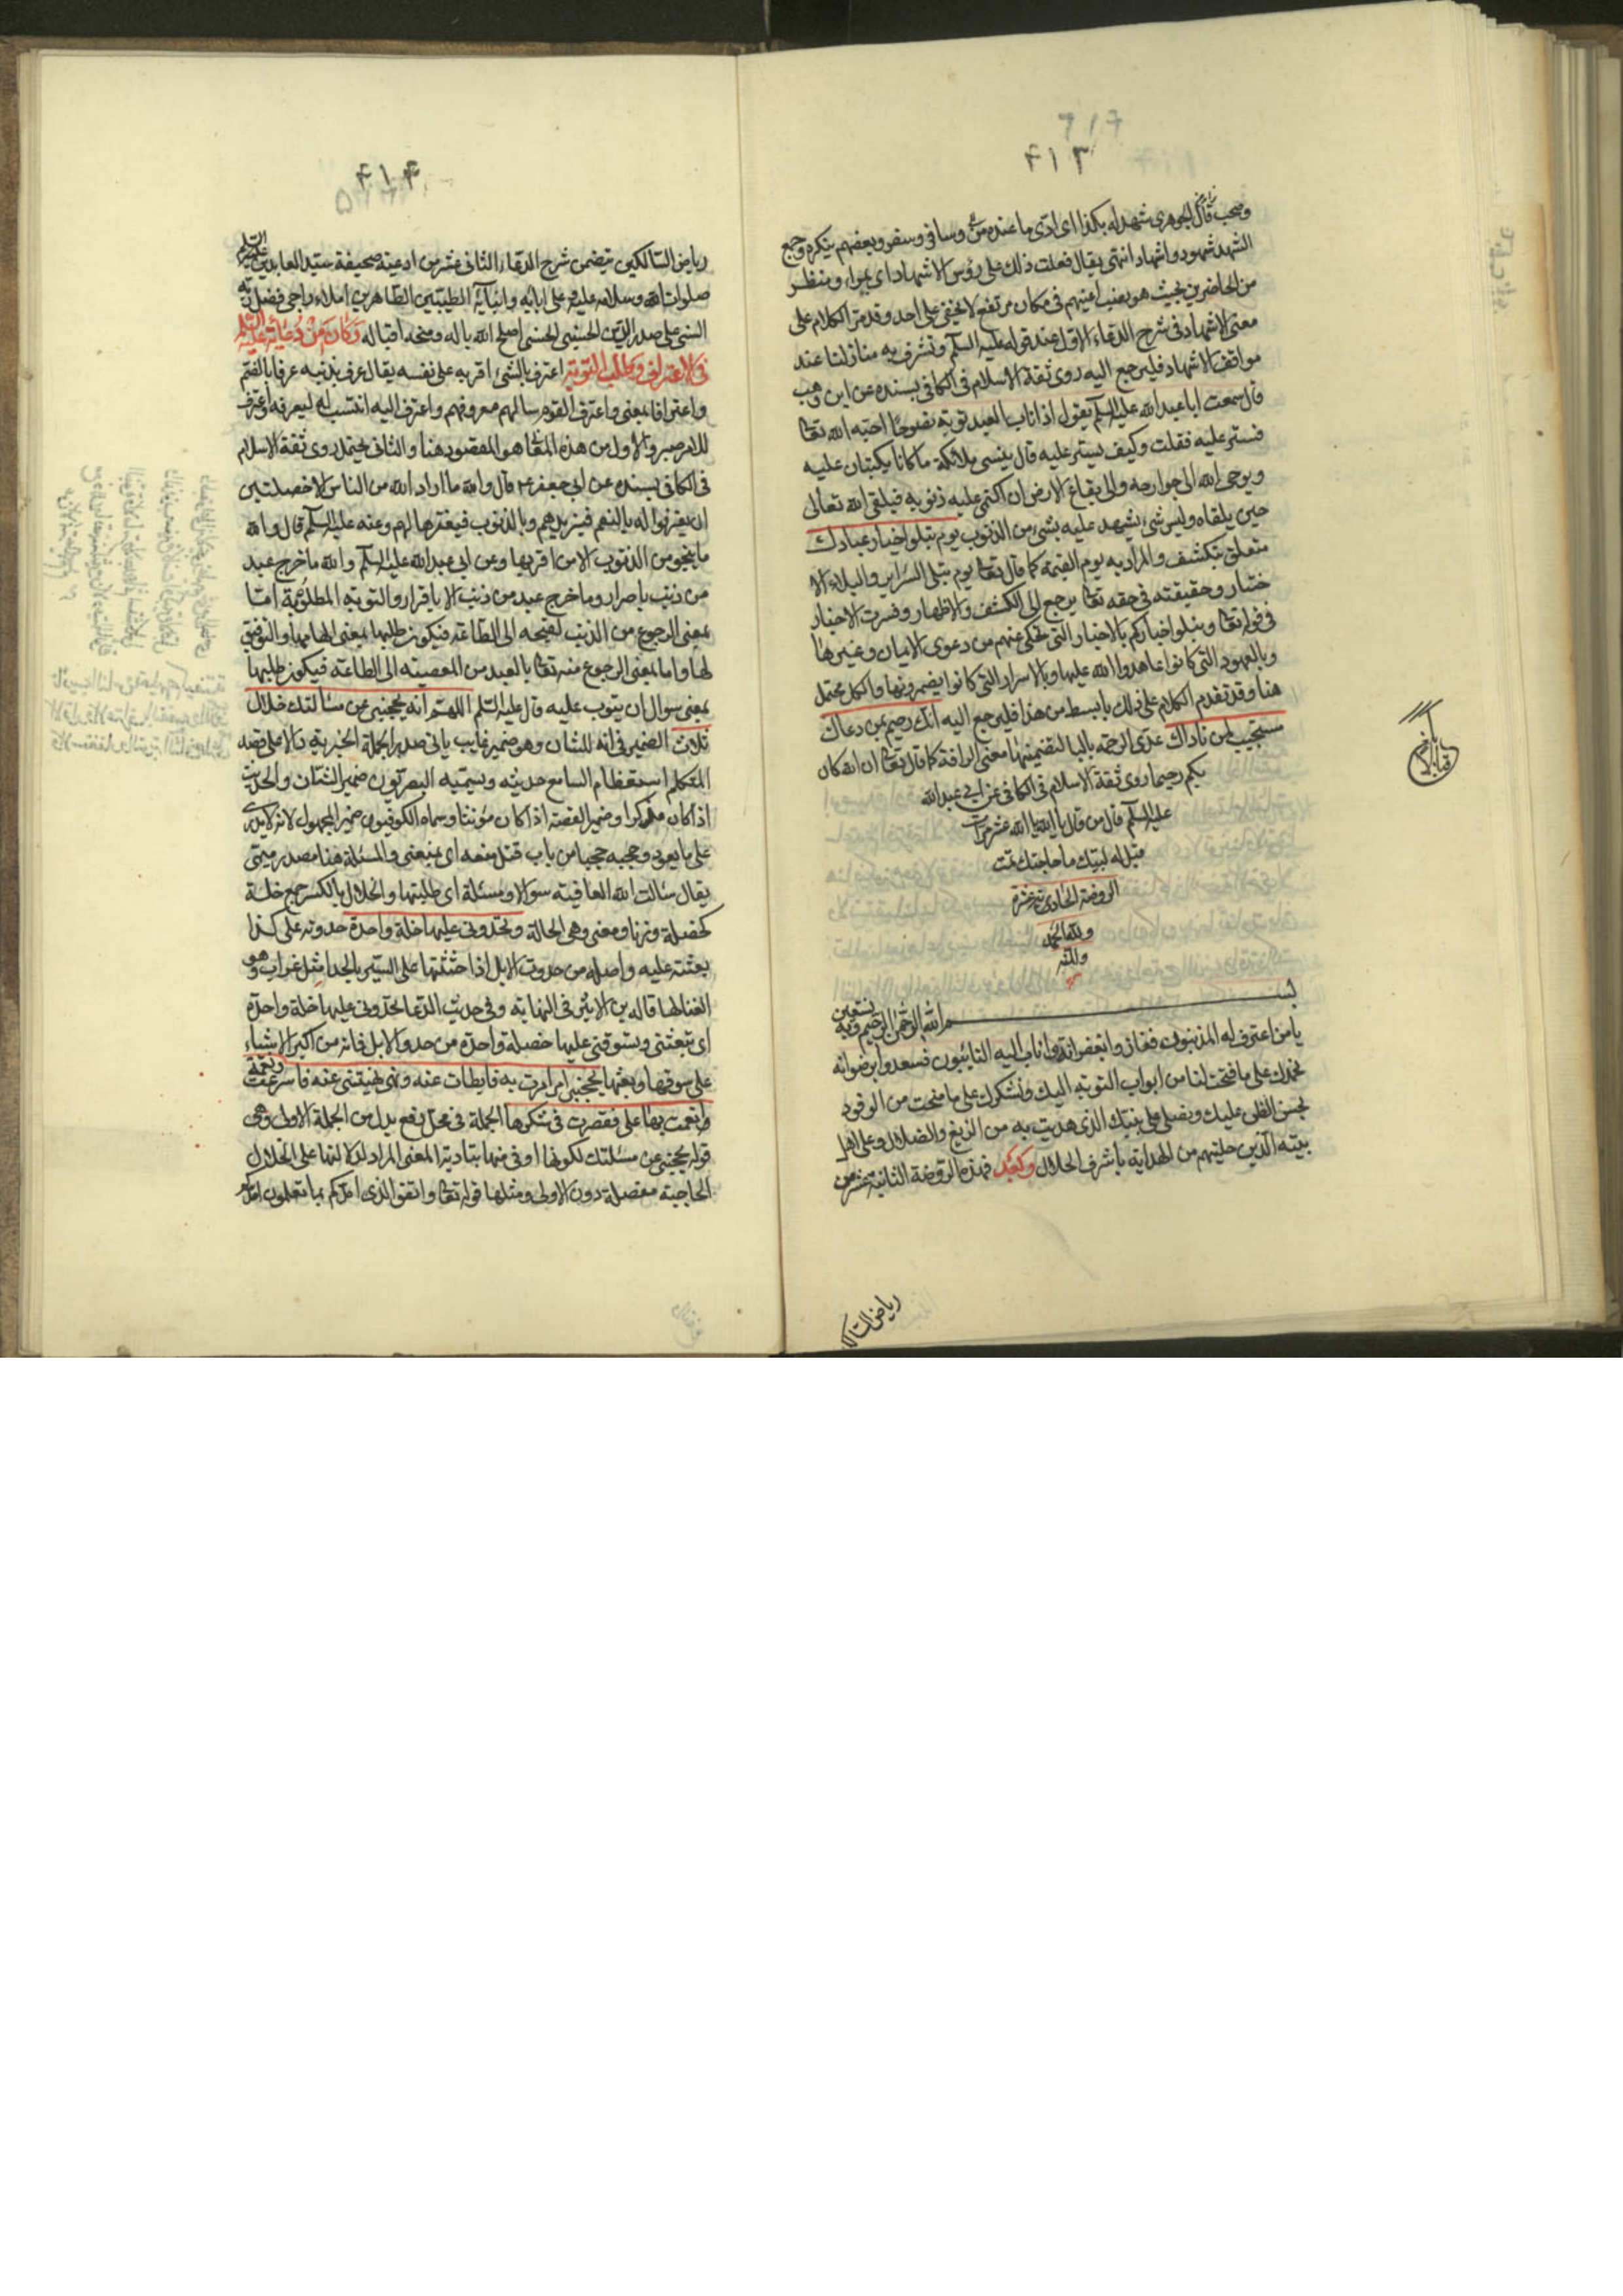 ٤١٣
وصحب قال الجوهرى شهد له بكذا اى ادى ما عنده من وسافر وسفر وبعضهم ينكره وجمع
الشهد شهود واشهاد انتهى يقال فعلت ذلك على رؤس الاشهاد اى بمراء ومنظر
من الحاضرين بحيث هو نصب اعينهم فى مكان مرتفع لا يخفى على احد وقد مر الكلام على
معنى الاشهاد فى شرح الدعاء الاول عند قوله عليه السلم وتشرف به منازلنا عند
مواقف الاشهاد فليرجع اليه روى ثقة الاسلام فى الكافى بسنده عن ابن وهب
قال سمعت ابا عبد الله عليه السلم يقول اذا تاب العبد توبة نصوحا احبه الله تعا
فستر عليه فقلت وكيف يستر عليه قال ينسى ملائكته ما كانا يكتبان عليه
ويوحى الله الى جوارحه والى بقاع الارض ان اكتمى عليه ذنوبه فيلقى الله تعالى
حين يلقاه وليس شئ يشهد عليه بشئ من الذنوب يوم تبلوا اخبار عبادك
متعلق بتكشف والمراد به يوم القيمة كما قال تعا يوم تبلى السرائر والبلاء الا
ختبار وحقيقته فى حقه تعا يرجع الى الكشف والاظهار وفسرت الاخبار
فى قوله تعا ونبلوا اخباركم بالاخبار التى تحكى عنهم من دعوى الايمان وغيرها
وبالعهود التى كانوا عاهدوا الله عليها وبالاسرار التى كانوا يضمرونها والكل محتمل
هنا وقد تقدم الكلام على ذلك بابسط من هذا فليرجع اليه انك رحيم بمن دعاك
مستجيب لمن ناداك عدى الرحمة بالباء لتضمينها معنى الرافة كما قال تعا ان الله كان
بكم رحيما روى ثقة الاسلام فى الكافى عن ابى عبد الله
عليه السلم قال من قال يا الله يا الله عشر مرات
قيل له لبيك ما حاجتك تمت
الروضة الحادى عشرة
ولله الحمد
والمنة
بسم الله الرحمن الرحيم وبه نستعين
يا من اعترف له المذنبون ففازوا بغفرانه واناب اليه التائبون فسعدوا برضوانه
نحمدك على ما فتحت لنا من ابواب التوبة اليك ونشكرك على ما منحت من الوفود
بحسن الظن عليك ونصلى على نبيك الذى هديت به من الزيغ والضلال وعلى اهل
بيته الذين حليتهم من الهداية باشرف الخلال وبعد فهذه الروضة الثانية عشر من
رياض السالك
٤١٤
رياض السالكين تتضمن شرح الدعاء الثانى عشر من ادعية صحيفة سيد العابدين
صلوات الله وسلامه عليه وعلى ابائه وابنائه الطيبين الطاهرين املاء راجى فضل ربه
السنى على صدر الدين الحسينى الحسنى اصلح الله باله ومنحه اقباله وكان من دعائه عليه السلم
فى الاعتراف وطلب التوبة اعترف بالشئ اقر به على نفسه يقال عرف بذنبه عرفا بالضم
واعترافا بمعنى واعترف القوم سالهم معروفهم واعترف اليه انتسب له ليعرفه واعترف
للامر صبر والاول من هذه المعا هو المقصود هنا والثانى يحتمل روى ثقة الاسلام
فى الكافى بسنده عن ابى جعفر ع قال والله ما اراد الله من الناس الا خصلتين
ان يقروا له بالنعم فيزيدهم وبالذنوب فيغفرها لهم وعنه عليه السلم قال والله
ما ينجو من الذنوب الا من اقر بها وعن ابى عبد الله عليه السلم والله ما خرج عبد
من ذنب باصرار وما خرج عبد من ذنب الا باقرار والتوبة المطلوبة اما
بمعنى الرجوع من الذنب لقبحه الى الطاعة فيكون طلبها بمعنى الهامها والتوفيق
لها واما بمعنى الرجوع منه تعا بالعبد من المعصية الى الطاعة فيكون طلبها
بمعنى سوال ان يتوب عليه قال عليه السلم اللهم انه يحجبنى عن مسالتك خلال
ثلاث الضمير فى انه للشان وهو ضمير غايب ياتى صدر الجملة الخبرية دالا على قصد
المتكلم استعظام السامع حديثه ويسميه البصريون ضمير الشان والحديث
اذا كان مذكرا وضمير القصة اذا كان مؤنثا وسماه الكوفيون ضمير المجهول لانه لا يدرى
على ما يعود وحجبه حجبا من باب قتل منعه اى يمنعنى والمسئلة هنا مصدر ميمى
يقال سالت الله العافية سوالا ومسئلة اى طلبتها والخلال بالكسر جمع خلة
كخصلة وزنا ومعنى وهى الحالة وتحدونى عليها خلة واحدة حدوته على كذا
بعثته عليه واصله من حدوت الابل اذا حثثتها على السير بالحداء مثل غراب وهو
الغناء لها قاله بن الاثير فى النهاية وفى حديث الدعا تحدونى عليها خلة واحدة
اى تبعثنى وتسوقنى عليها خصلة واحدة من حدو الابل فانه من اكبر الاشياء
على سوقها وبعثها يحجبنى امر امرت به فابطات عنه ونهى نهيتنى عنه فاسرعت ونعمة
انعمت بها على فقصرت فى شكرها الجملة فى محل رفع بدل من الجملة الاولى وهى
قوله يحجبنى عن مسئلتك لكونها اوفى منها بتادية المعنى المراد لدلالتها على الخلال
الحاجبة مفصلة دون الاولى ومثلها قوله تعا واتقوا الذى امدكم بما تعلمون امدكم